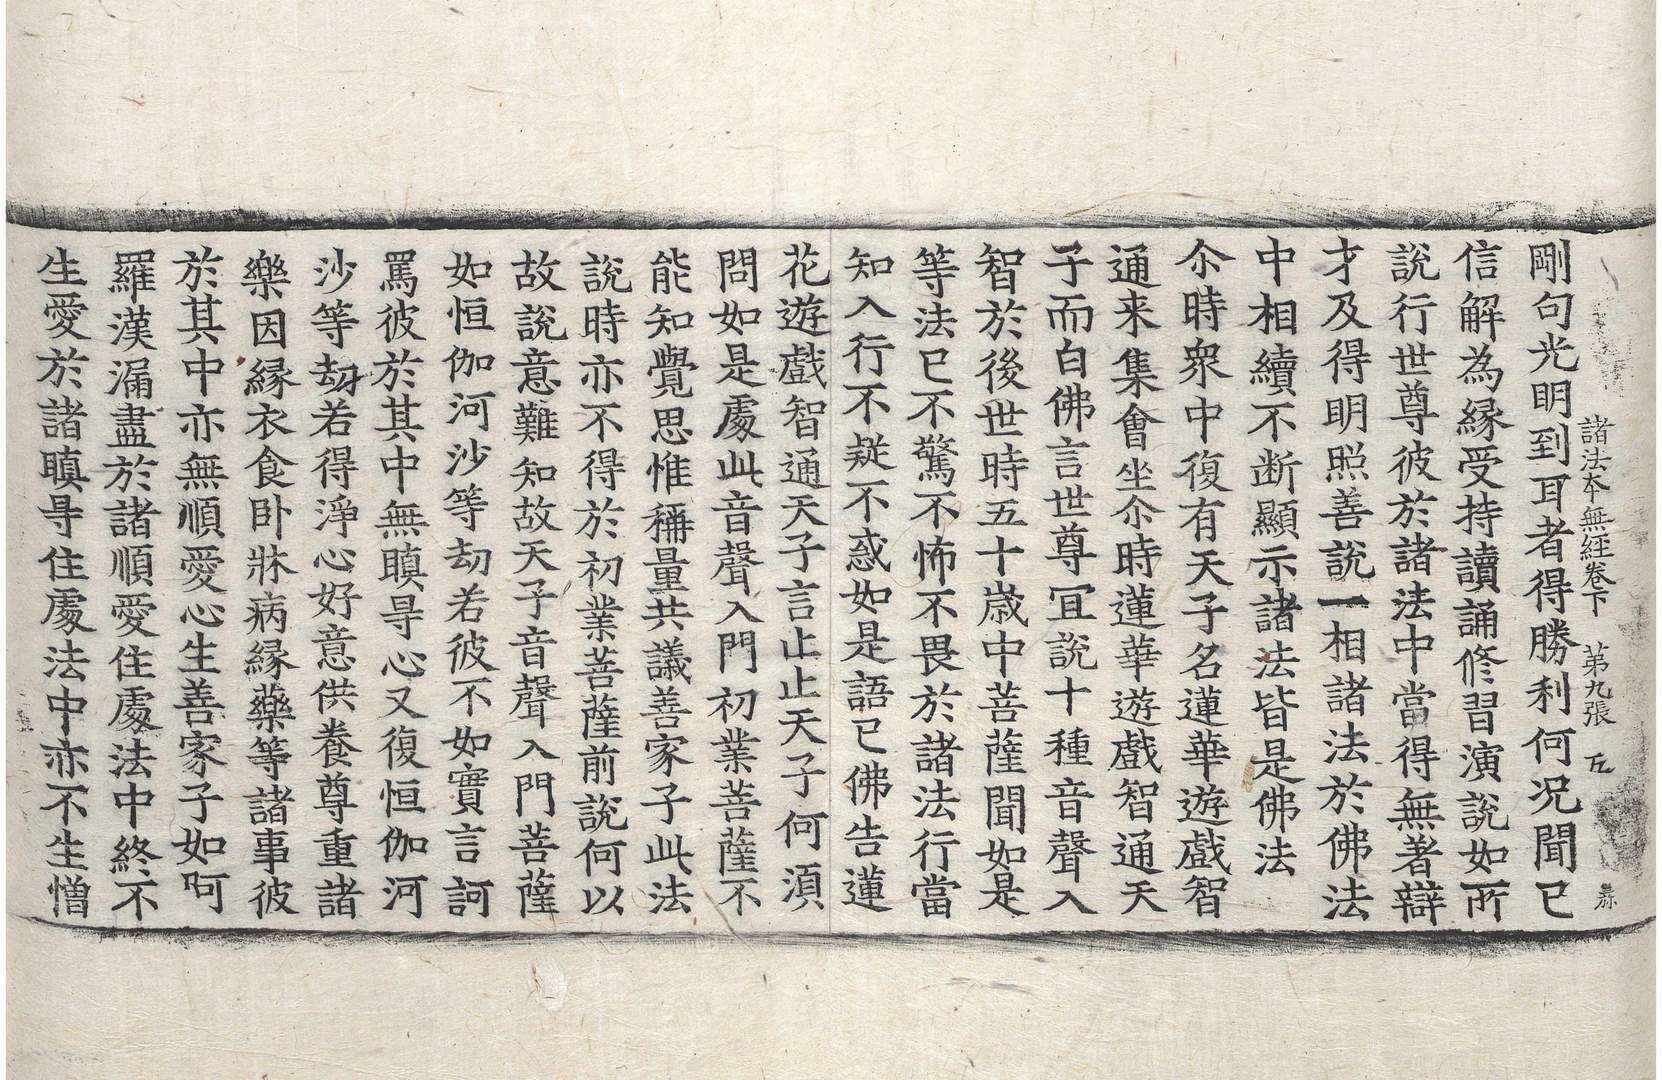 諸法本無經卷下 第九張
剛句光明到耳者得勝利何況聞已
信解為縁受持讀誦修習演說如所
說行世尊彼於諸法中當得無著辯
才及得明照善說一相諸法於佛法
中相續不断顯示諸法皆是佛法
尒時衆中復有天子名蓮華遊戲智
通来集會坐尒時蓮華遊戲智通天
子而白佛言世尊冝說十種音聲入
智於後世時五十歲中菩薩聞如是
等法已不驚不怖不畏於諸法行當
知入行不疑不惑如是語已佛告蓮
花遊戲智通天子言止止天子何湏
問如是處此音聲入門初業菩薩不
能知覺思惟稱量共議善家子此法
說時亦不得於初業菩薩前說何以
故說意難知故天子音聲入門菩薩
如恒伽河沙等劫若彼不如實言訶
罵彼於其中無瞋㝵心又復恒伽河
沙等劫若得淨心好意供養尊重諸
樂因縁衣食卧牀病縁藥等諸事彼
於其中亦無順愛心生善家子如阿
羅漢漏盡於諸順愛住處法中終不
生愛於諸瞋㝵住處法中亦不生憎